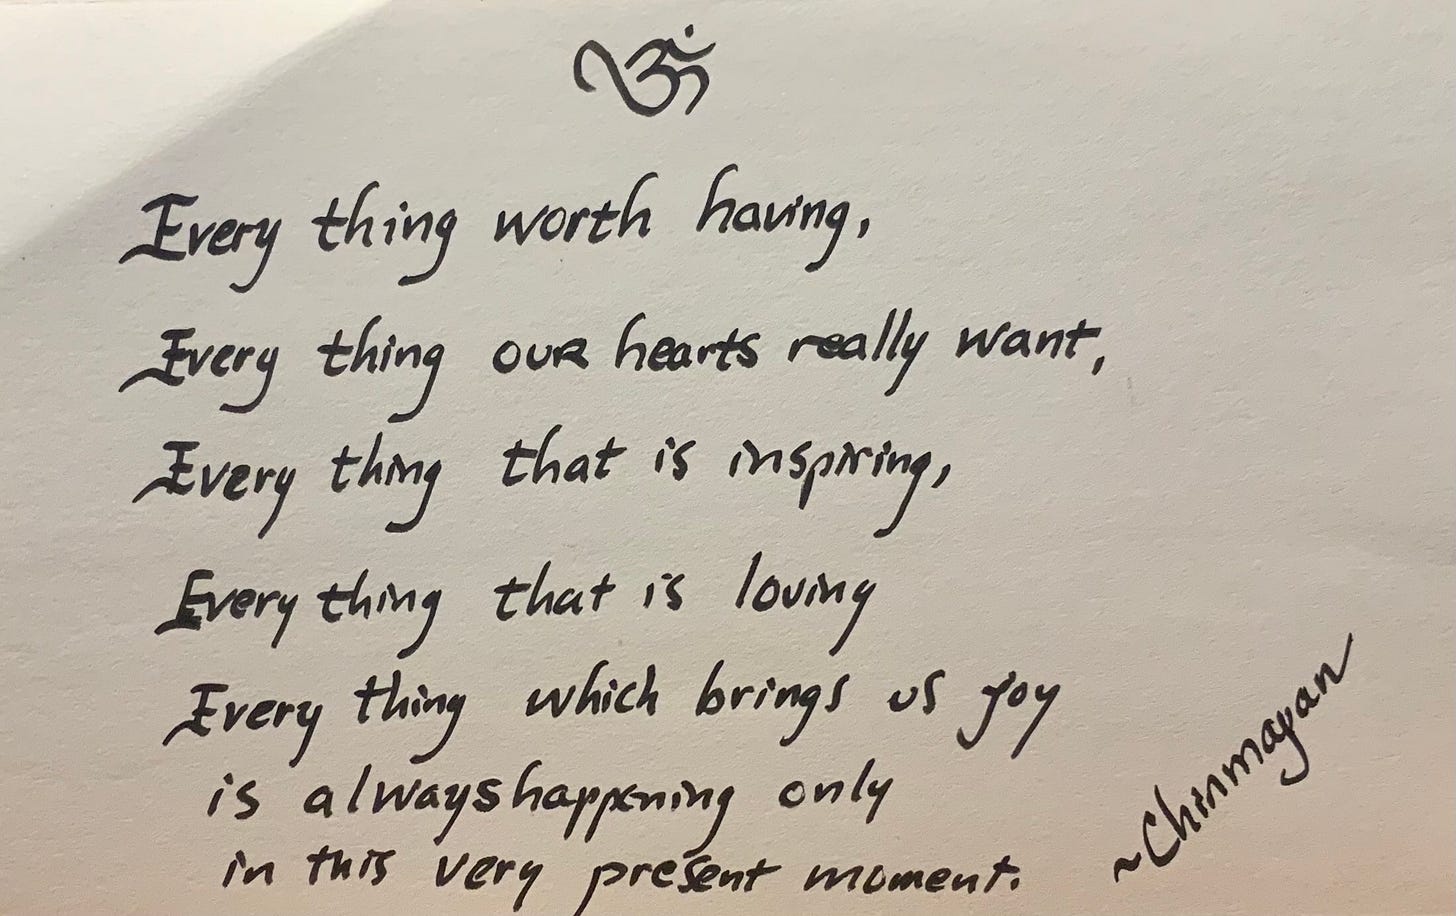 ॐ
Every thing worth having,
Every thing our hearts really want,
Every thing that is inspiring,
Every thing that is loving
Every thing which brings us joy
is always happening only
in this very present moment.
~Chinmayan